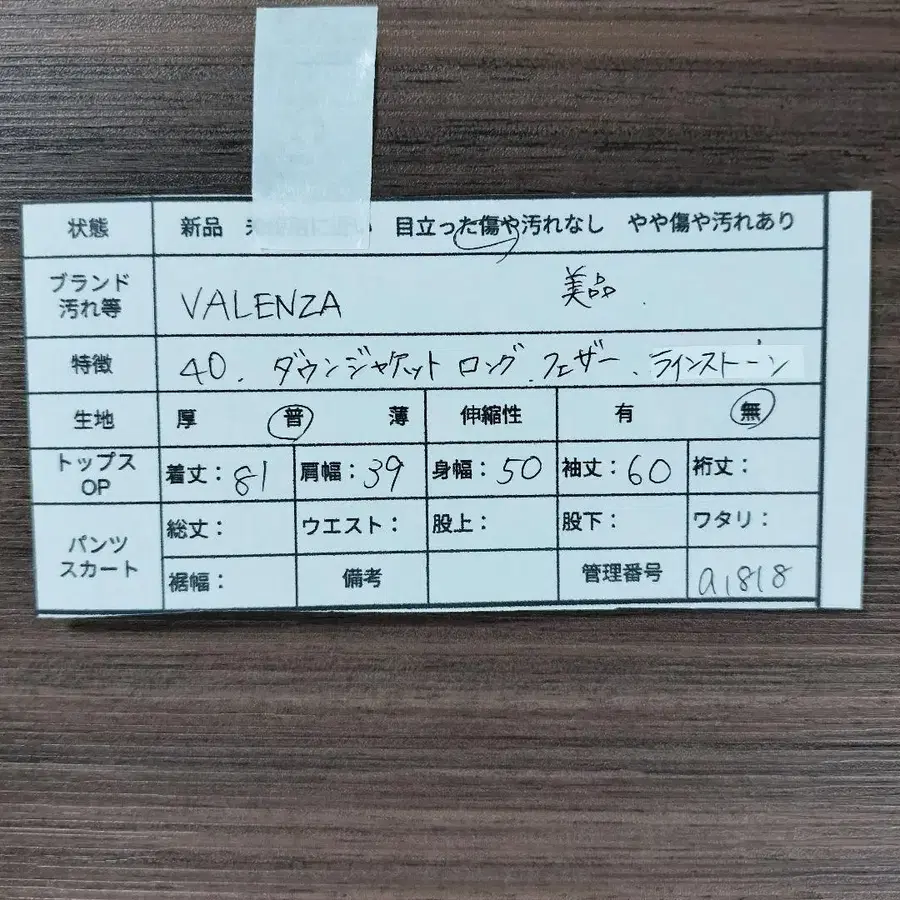 状態 新品 い 目立った傷や汚れなし やや傷や汚れあり
ブランド
汚れ等 VALENZA 美品.
特徴 40. ダウンジャケット ロング. フェザー. ラインストーン
生地 厚 普 薄 伸縮性 有 無
トップス
OP 着丈:81 肩幅:39 身幅:50 袖丈:60 裄丈:
パンツ
スカート 総丈: ウエスト: 股上: 股下: ワタリ:
裾幅: 備考 管理番号 a1818